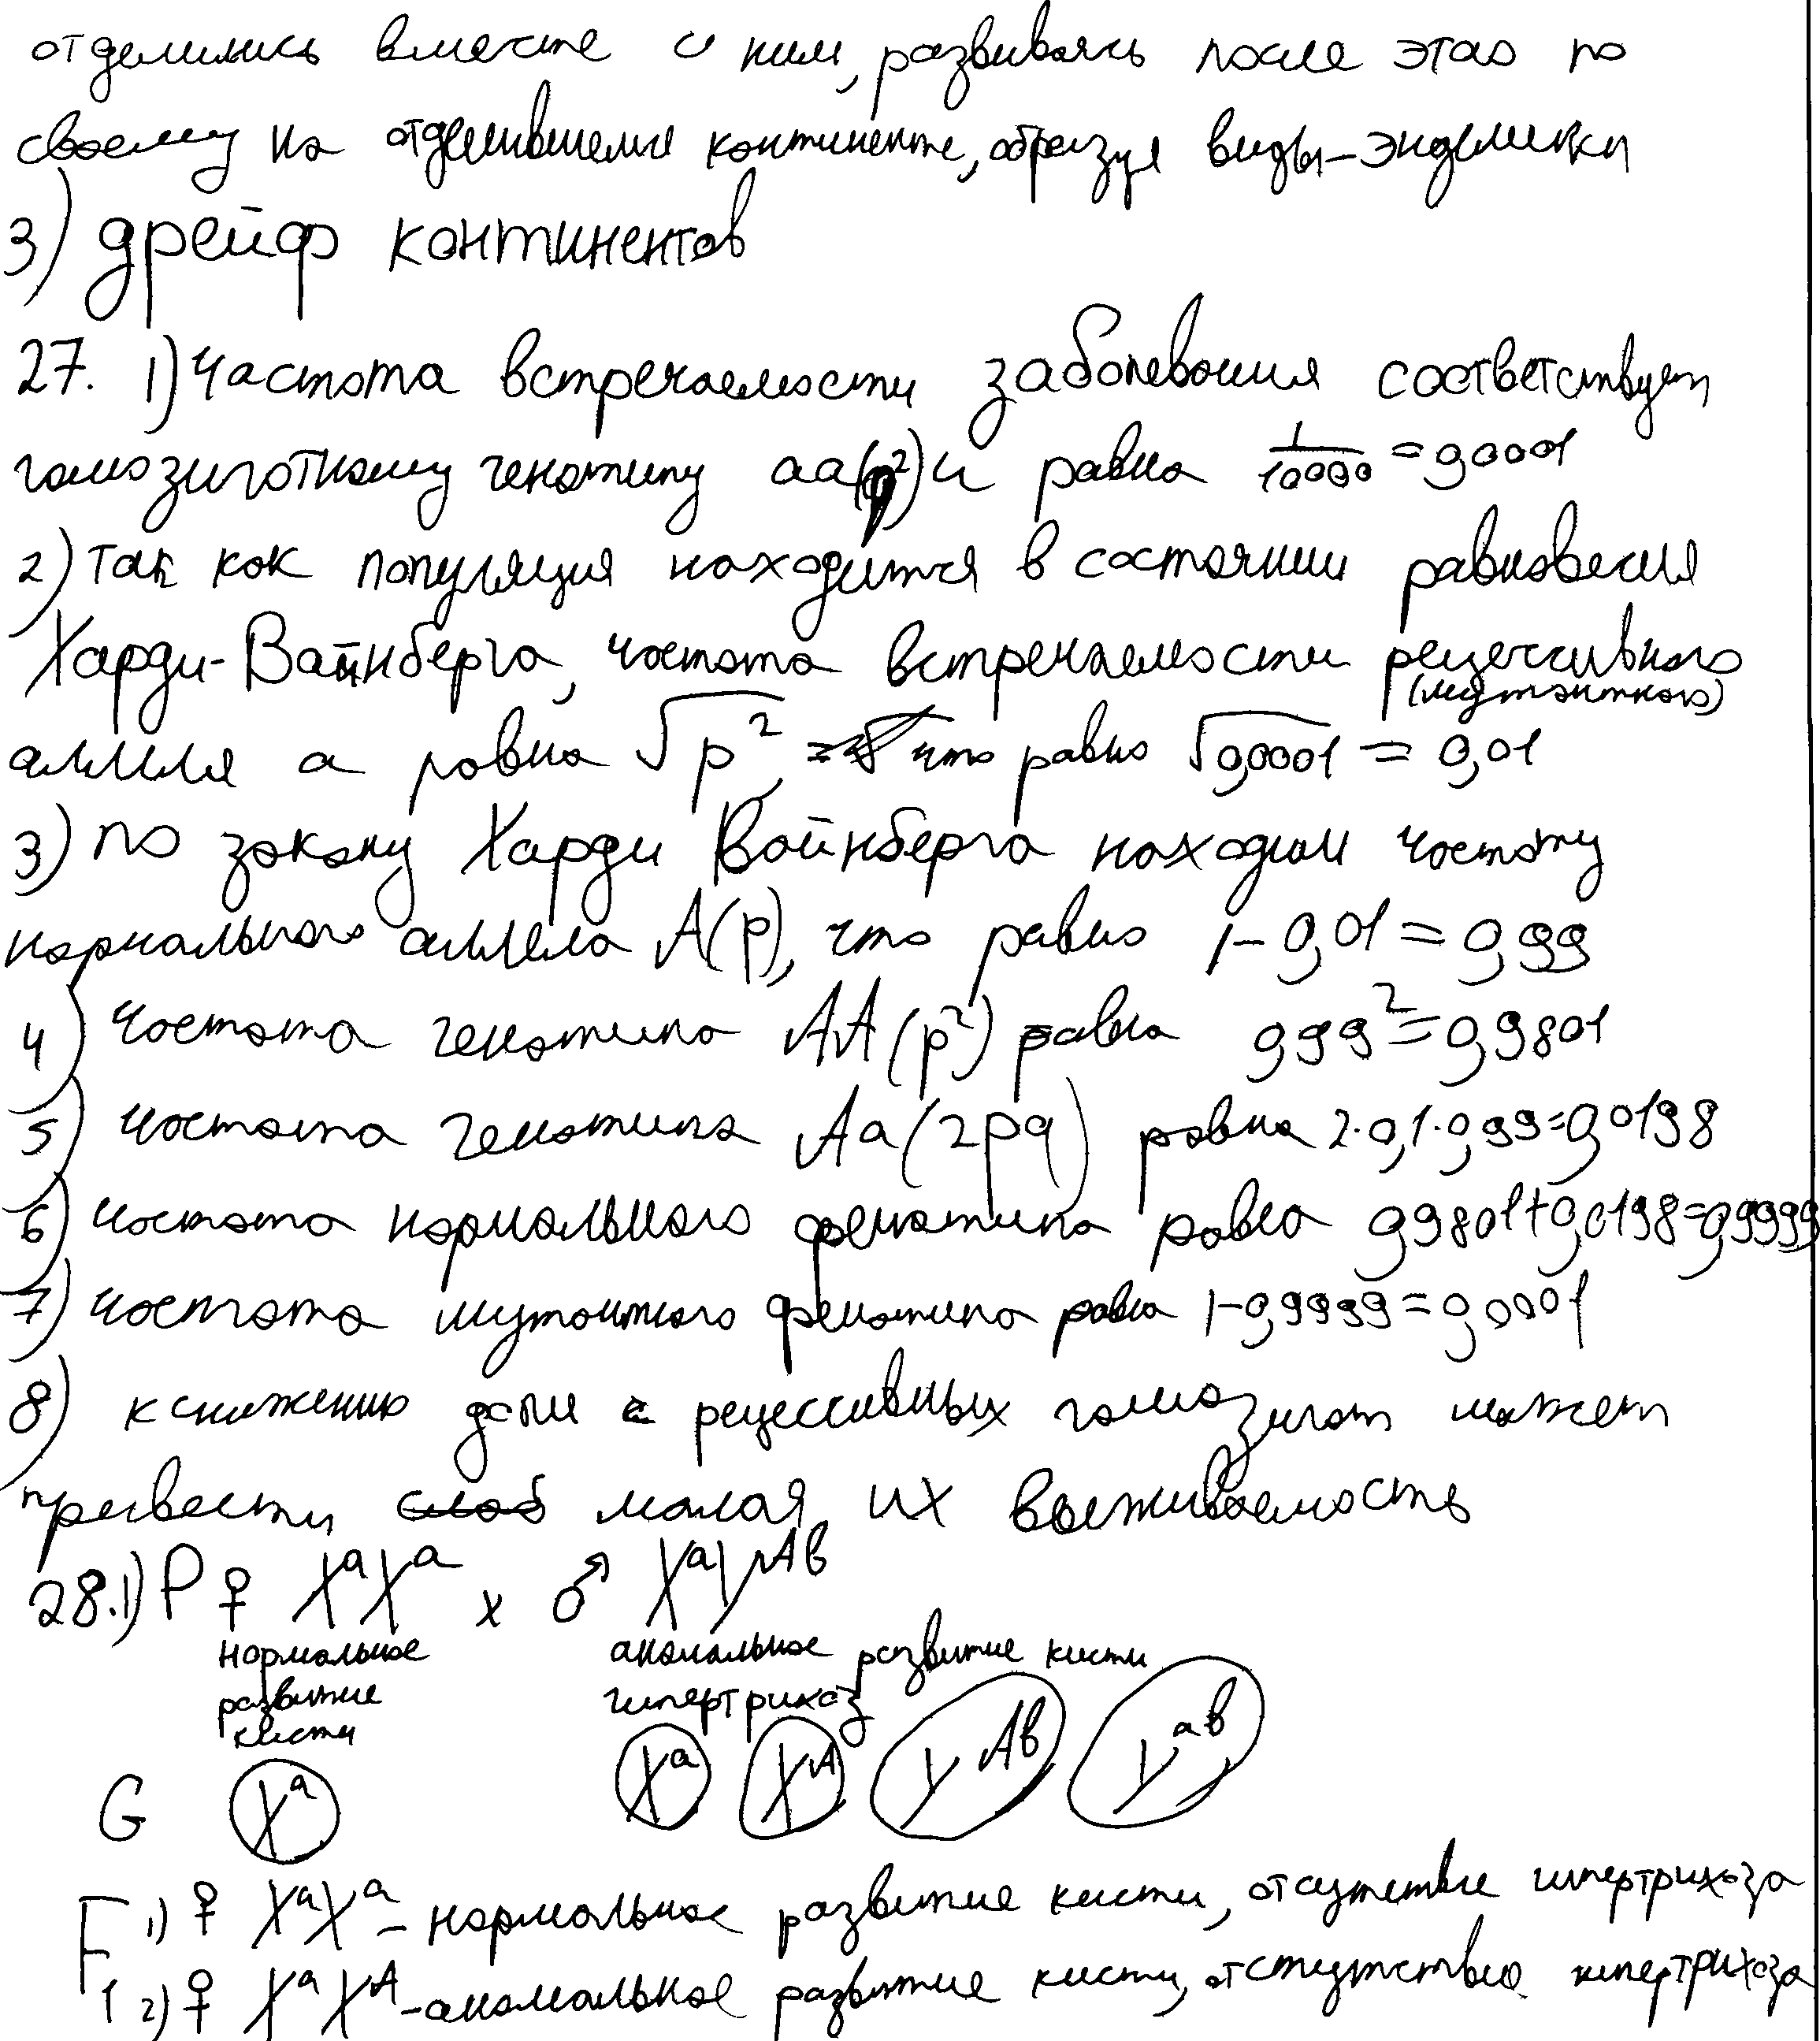 отделились вместе с ним, развиваясь после этого по
своему на отделившемся континенте, образуя виды-эндемики
3) дрейф континентов
27. 1) Частота встречаемости заболевания соответствует
гомозиготному генотипу аа(p²) и равна 1/10000 = 0,0001
2) Так как популяция находится в состоянии равновесия
Харди-Вайнберга, частота встречаемости рецессивного
(мутантного)
аллеля а равна √p², что равно √0,0001 = 0,01
3) по закону Харди Вайнберга находим частоту
нормального аллеля А(p), что равно 1-0,01=0,99
4) частота генотипа АА(p²) равна 0,99²=0,9801
5) частота генотипа Аа(2pq) равна 2·0,1·0,99=0,0198
6) частота нормального фенотипа равна 0,9801+0,0198=0,9999
7) частота мутантного фенотипа равна 1-0,9999=0,0001
8) к снижению доли рецессивных гомозигот может
привести малая их выживаемость
28.1) P ♀ XᵃXᵃ x ♂ XᵃYᴬᵇ
нормальное аномальное развитие кисти
развитие гипертрихоз
кисти
G Xᵃ Xᵃ Xᴬ Yᴬᵇ Yᵃᵇ
F1 1) ♀ XᵃXᵃ - нормальное развитие кисти, отсутствие гипертрихоза
2) ♀ XᵃXᴬ - аномальное развитие кисти, отсутствие гипертрихоза